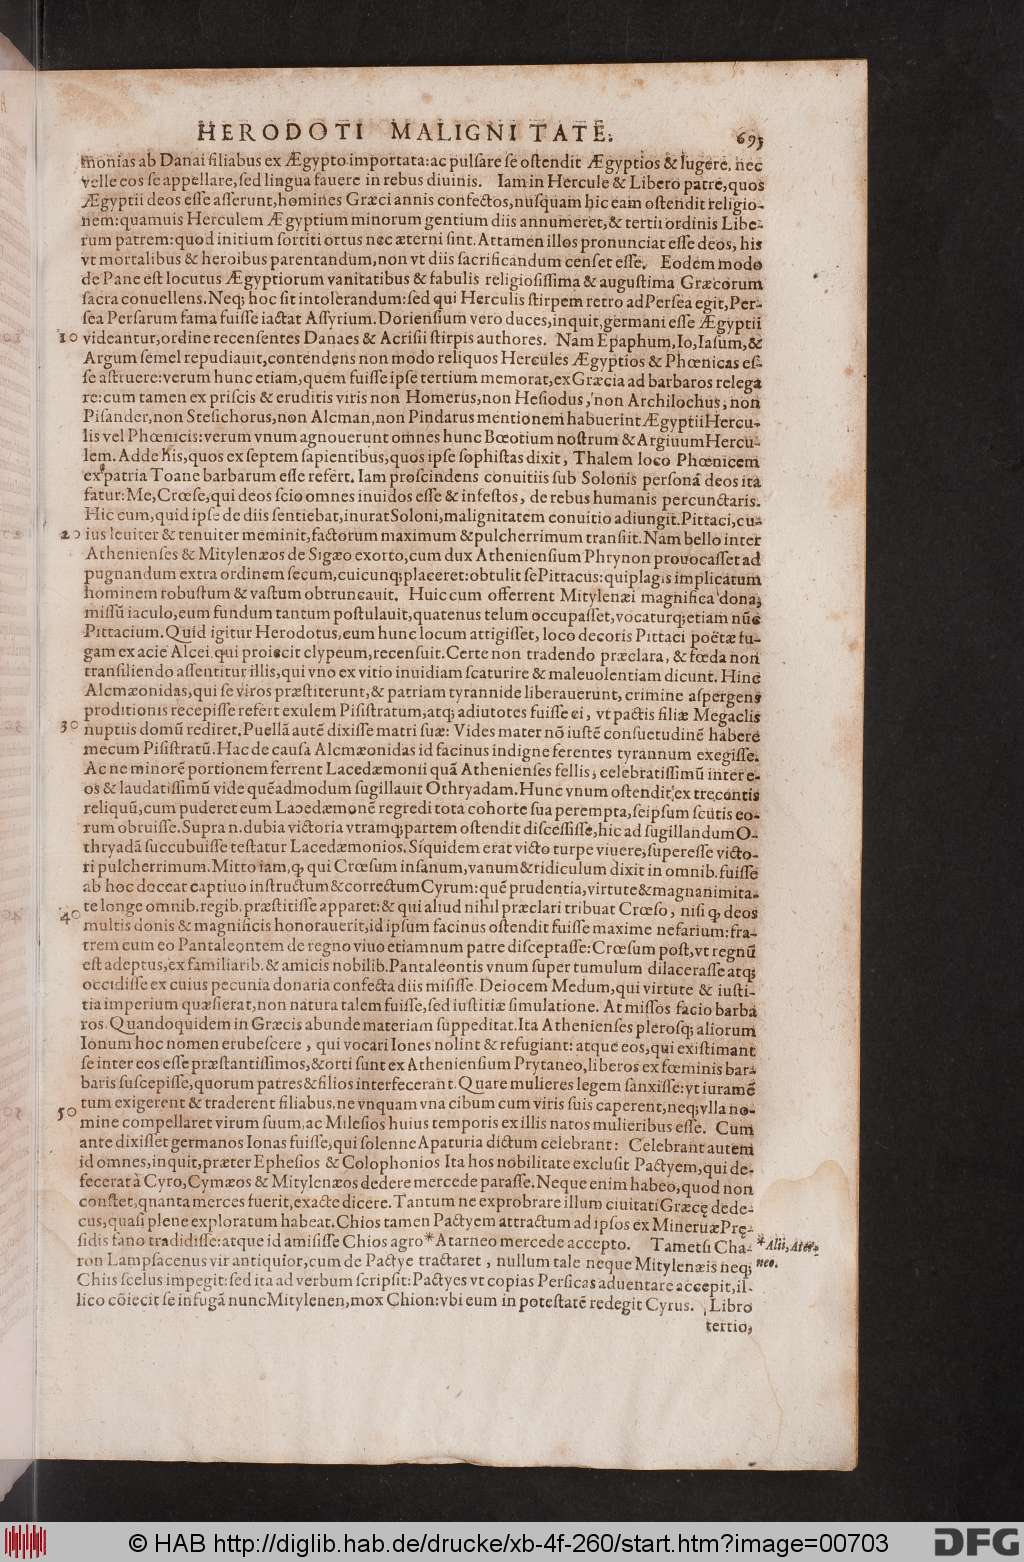 HERODOTI MALIGNITATE. 693
monias ab Danai filiabus ex Ægypto importata: ac pulsare se ostendit Ægyptios & lugere, nec
velle eos se appellare, sed lingua fauere in rebus diuinis. Iam in Hercule & Libero patre, quos
Ægyptii deos esse asserunt, homines Græci annis confectos, nusquam hic eam ostendit religio-
nem: quamuis Herculem Ægyptium minorum gentium diis annumeret, & tertii ordinis Libe-
rum patrem: quod initium sortiti ortus nec æterni sint. Attamen illos pronunciat esse deos, his
vt mortalibus & heroibus parentandum, non vt diis sacrificandum censet esse. Eodem modo
de Pane est locutus Ægyptiorum vanitatibus & fabulis religiosissima & augustima Græcorum
sacra conuellens. Neq; hoc sit intolerandum: sed qui Herculis stirpem retro ad Persea egit, Per-
sea Persarum fama fuisse iactat Assyrium. Doriensium vero duces, inquit, germani esse Ægyptii
10 videantur, ordine recensentes Danaes & Acrisii stirpis authores. Nam Epaphum, Io, Iasum, &
Argum semel repudiauit, contendens non modo reliquos Hercules Ægyptios & Phœnicas es-
se astruere: verum hunc etiam, quem fuisse ipse tertium memorat, ex Græcia ad barbaros relega
re: cum tamen ex priscis & eruditis viris non Homerus, non Hesiodus, non Archilochus, non
Pisander, non Stesichorus, non Alcman, non Pindarus mentionem habuerint Ægyptii Hercu-
lis vel Phœnicis: verum vnum agnouerunt omnes hunc Bœotium nostrum & Argiuum Hercu-
lem. Adde his, quos ex septem sapientibus, quos ipse sophistas dixit, Thalem loco Phœnicem
ex patria Toane barbarum esse refert. Iam proscindens conuitiis sub Solonis personâ deos ita
fatur: Me, Crœse, qui deos scio omnes inuidos esse & infestos, de rebus humanis percunctaris.
Hic cum, quid ipse de diis sentiebat, inurat Soloni, malignitatem conuitio adiungit. Pittaci, cu-
20 ius leuiter & tenuiter meminit, factorum maximum & pulcherrimum transiit. Nam bello inter
Athenienses & Mitylenæos de Sigæo exorto, cum dux Atheniensium Phrynon prouocasset ad
pugnandum extra ordinem secum, cuicunq; placeret: obtulit se Pittacus: qui plagis implicatum
hominem robustum & vastum obtruncauit. Huic cum offerrent Mitylenæi magnifica dona,
missū iaculo, eum fundum tantum postulauit, quatenus telum occupasset, vocaturq; etiam nūc
Pittacium. Quid igitur Herodotus, cum hunc locum attigisset, loco decoris Pittaci poëtæ fu-
gam ex acie Alcei qui proiecit clypeum, recensuit. Certe non tradendo præclara, & fœda non
transiliendo assentitur illis, qui vno ex vitio inuidiam scaturire & maleuolentiam dicunt. Hinc
Alcmæonidas, qui se viros præstiterunt, & patriam tyrannide liberauerunt, crimine aspergens
proditionis recepisse refert exulem Pisistratum, atq; adiutotes fuisse ei, vt pactis filiæ Megaclis
30 nuptiis domū rediret. Puellā autē dixisse matri suæ: Vides mater nō iustē consuetudinē habere
mecum Pisistratū. Hac de causa Alcmæonidas id facinus indigne ferentes tyrannum exegisse.
Ac ne minorē portionem ferrent Lacedæmonii quā Athenienses fellis, celebratissimū inter e-
os & laudatissimū vide quēadmodum sugillauit Othryadam. Hunc vnum ostendit ex trecentis
reliquū, cum puderet eum Lacedæmonē regredi tota cohorte sua perempta, seipsum scutis eo-
rum obruisse. Supra n. dubia victoria vtramq; partem ostendit discessisse, hic ad sugillandum O-
thryadā succubuisse testatur Lacedæmonios. Siquidem erat victo turpe viuere, superesse victo-
ri pulcherrimum. Mitto iam, ꝙ qui Crœsum insanum, vanum & ridiculum dixit in omnib. fuisse
ab hoc doceat captiuo instructum & correctum Cyrum: quē prudentia, virtute & magnanimita-
te longe omnib. regib. præstitisse apparet: & qui aliud nihil præclari tribuat Crœso, nisi ꝙ deos
40 multis donis & magnificis honorauerit, id ipsum facinus ostendit fuisse maxime nefarium: fra-
trem cum eo Pantaleontem de regno viuo etiamnum patre disceptasse: Crœsum post, vt regnū
est adeptus, ex familiarib. & amicis nobilib. Pantaleontis vnum super tumulum dilacerasse atq;
occidisse ex cuius pecunia donaria confecta diis misisse. Deiocem Medum, qui virtute & iusti-
tia imperium quæsierat, non natura talem fuisse, sed iustitiæ simulatione. At missos facio barba
ros. Quandoquidem in Græcis abunde materiam suppeditat. Ita Athenienses plerosq; aliorum
Ionum hoc nomen erubescere, qui vocari Iones nolint & refugiant: atque eos, qui existimant
se inter eos esse præstantissimos, & orti sunt ex Atheniensium Prytaneo, liberos ex fœminis bar-
baris suscepisse, quorum patres & filios interfecerant. Quare mulieres legem sanxisse: vt iuramē
tum exigerent & traderent filiabus, ne vnquam vna cibum cum viris suis caperent, neq; vlla no-
50 mine compellaret virum suum, ac Milesios huius temporis ex illis natos mulieribus esse. Cum
ante dixisset germanos Ionas fuisse, qui solenne Apaturia dictum celebrant: Celebrant autem
id omnes, inquit, præter Ephesios & Colophonios Ita hos nobilitate exclusit Pactyem, qui de-
fecerat à Cyro, Cymæos & Mitylenæos dedere mercede parasse. Neque enim habeo, quod non
constet, qnanta merces fuerit, exacte dicere. Tantum ne exprobrare illum ciuitati Græcę dede-
cus, quasi plene exploratum habeat. Chios tamen Pactyem attractum ad ipsos ex Mineruæ Prę-
sidis fano tradidisse: atque id amisisse Chios agro * Atarneo mercede accepto. Tametsi Cha- * Alii, Ater-
ron Lampsacenus vir antiquior, cum de Pactye tractaret, nullum tale neque Mitylenæis neq; neo.
Chiis scelus impegit: sed ita ad verbum scripsit: Pactyes vt copias Persicas aduentare accepit, il-
lico cōiecit se in fugā nunc Mitylenen, mox Chion: vbi eum in potestatē redegit Cyrus. Libro
tertio,
© HAB http://diglib.hab.de/drucke/xb-4f-260/start.htm?image=00703
DFG